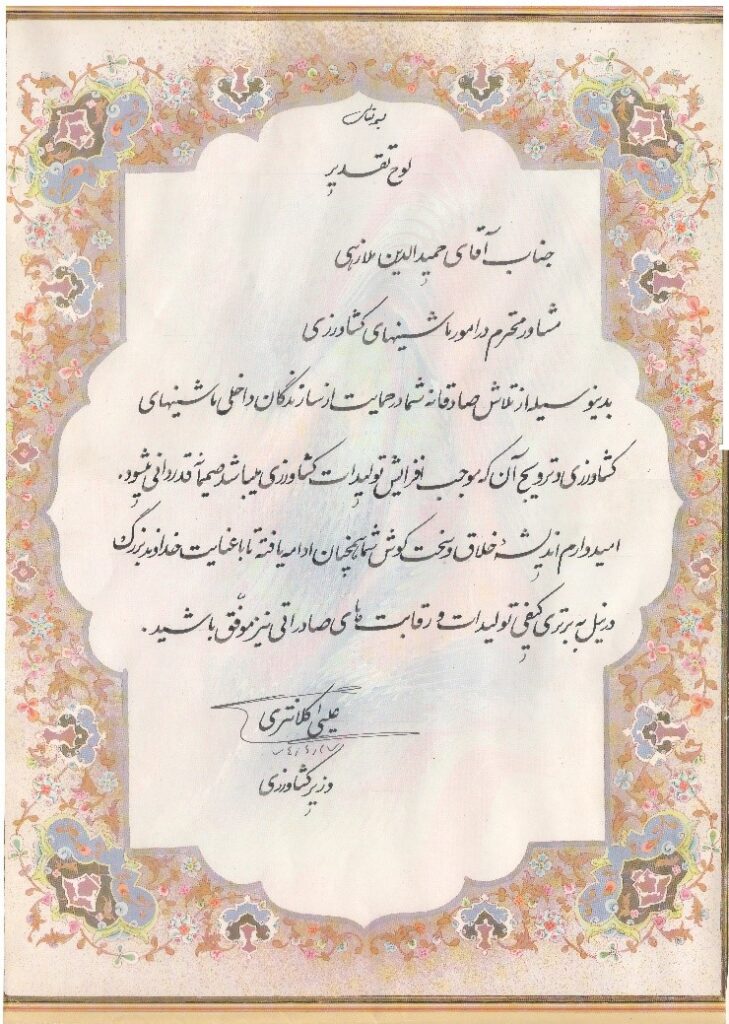 بسمه تعالی
لوح تقدیر
جناب آقای حمیدالدین ملازهی
مشاور محترم در امور ماشینهای کشاورزی
بدینوسیله از تلاش صادقانه شما در حمایت از سازندگان داخلی ماشینهای
کشاورزی و ترویج آن که موجب افزایش تولیدات کشاورزی میباشد صمیمآ قدردانی میشود.
امیدوارم اندیشهٔ خلاق و سخت کوش شما همچنان ادامه یافته تا با عنایت خداوند بزرگ
در نیل به برتری کیفی تولیدات و رقابت های صادراتی نیز موفّق باشید.
عیسی کلانتری
۷۴/۴/۲۷
وزیر کشاورزی